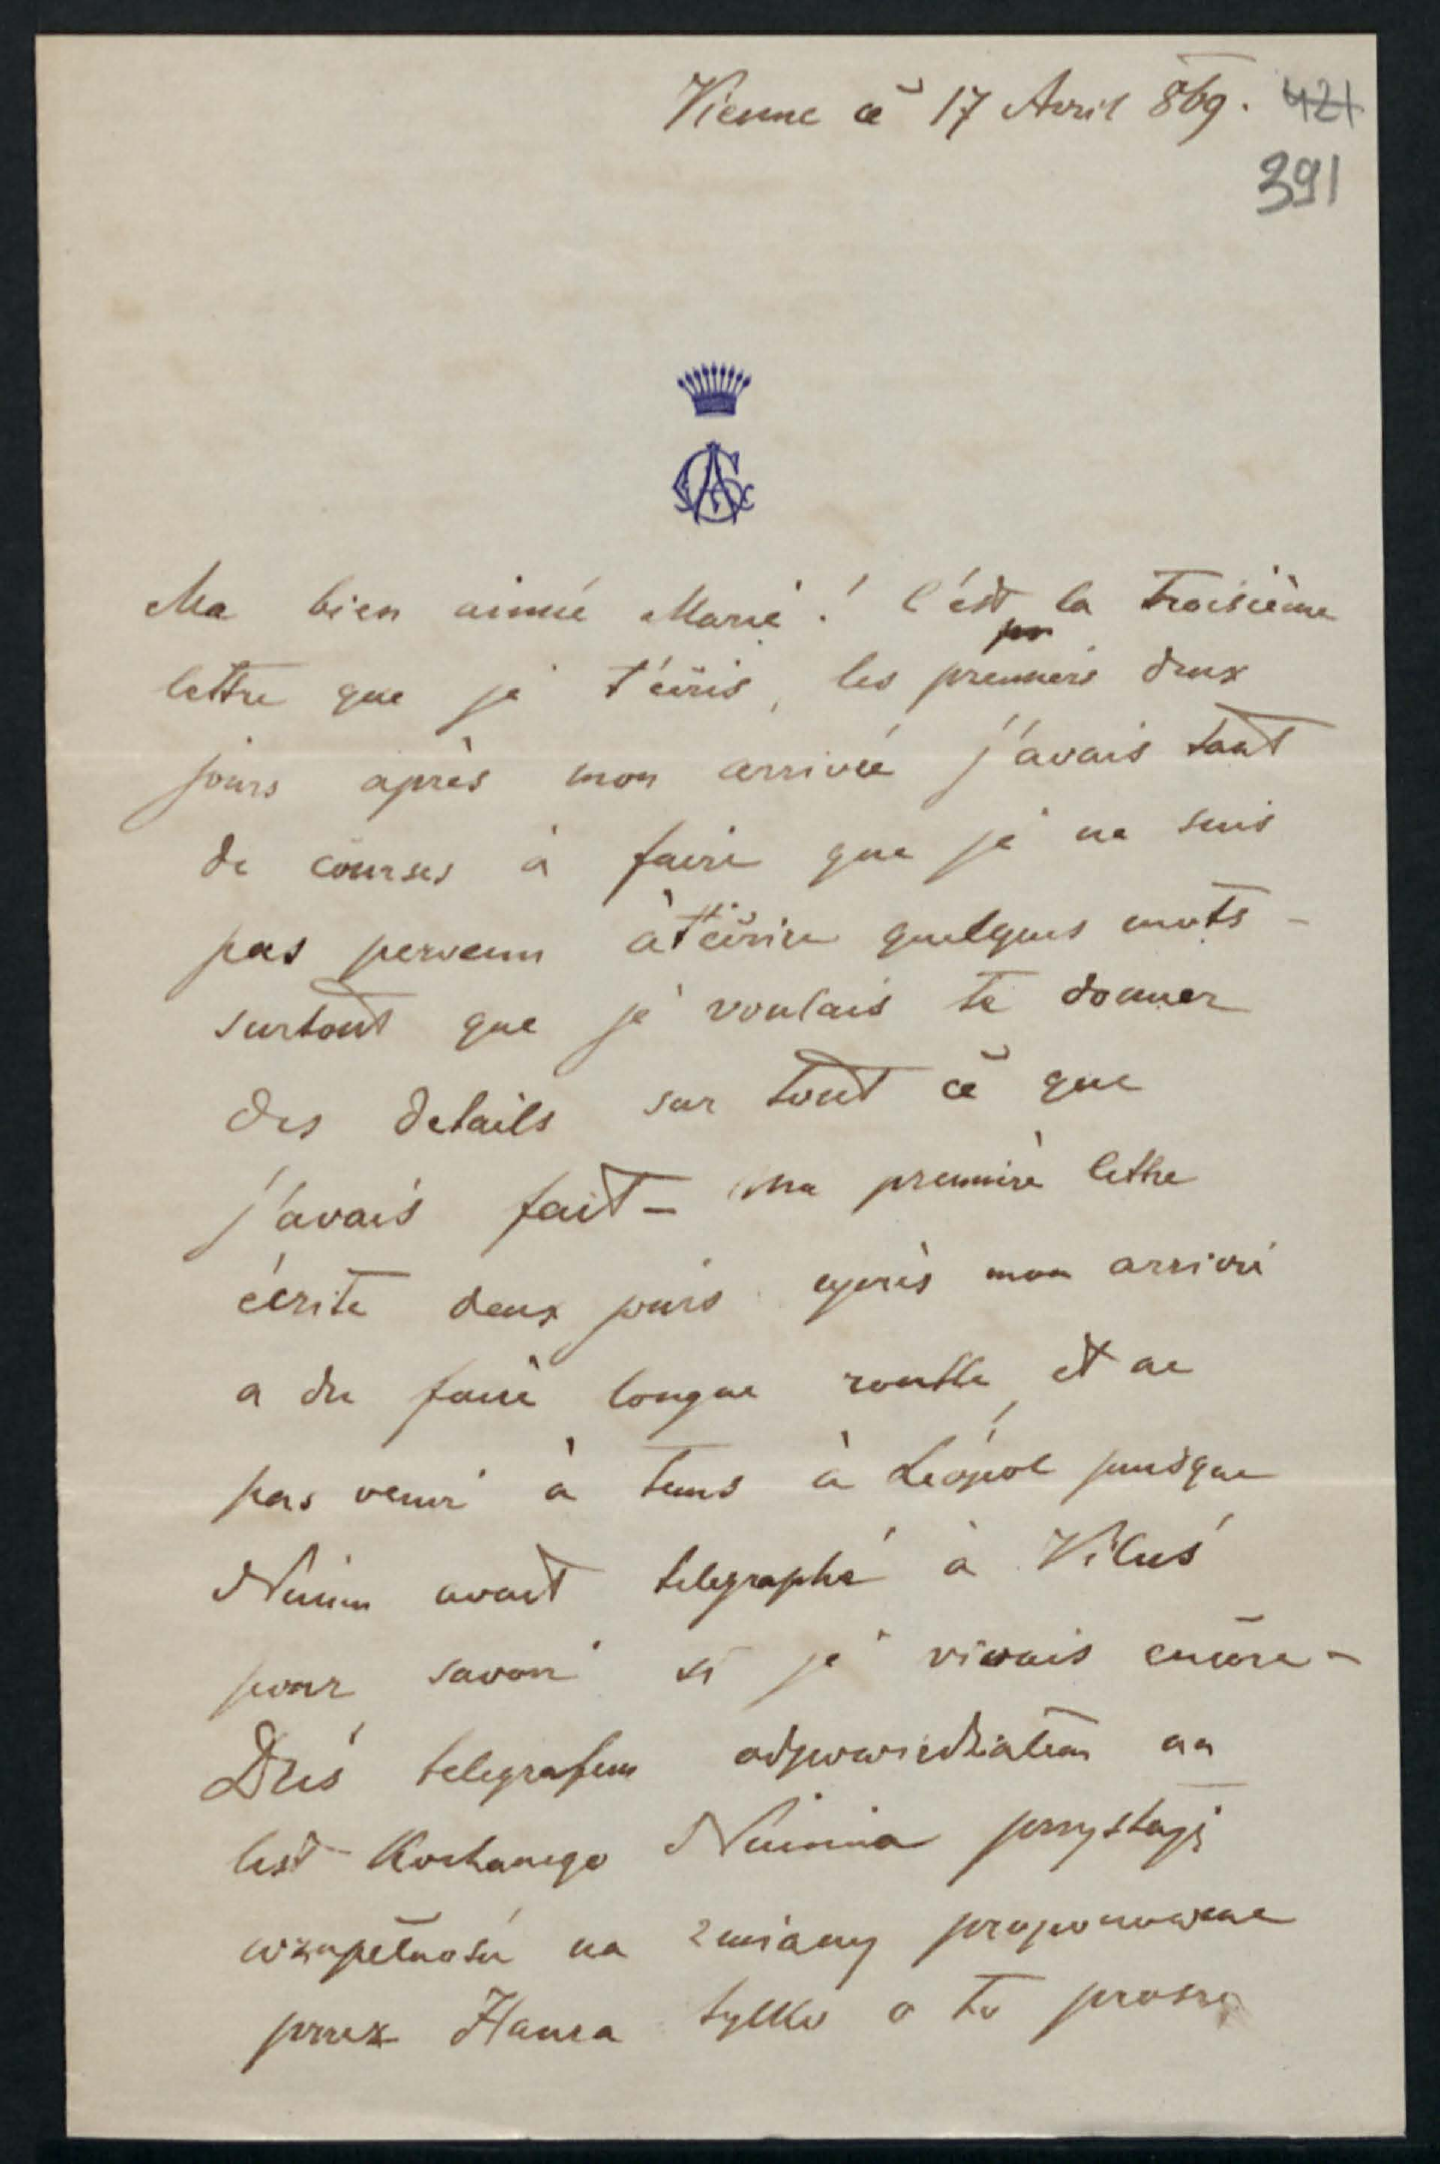 Vienne ce 17 Avril 869. 421
391
Ma bien aimée Marie! C'est la troisième
lettre que je t'écris, les premiers deux
jours après mon arrivée j'avais tant
de courses à faire que je ne suis
pas pervenu à t'écrire quelques mots –
surtout que je voulais te donner
des details sur tout ce que
j'avais fait – Ma premiere lettre
écrite deux jours après mon arrivé
a du faire longue routte, et ne
pas venir à tems à Léopol puisque
Nunin avait telegraphé à Viluś
pour savoir si je vivais encore –
Dziś telegrafem odpowiedziałem na
list Kochanego Nunina przystaję
wzupełności na zmiany proponowane
przez Hansa tylko o to proszę